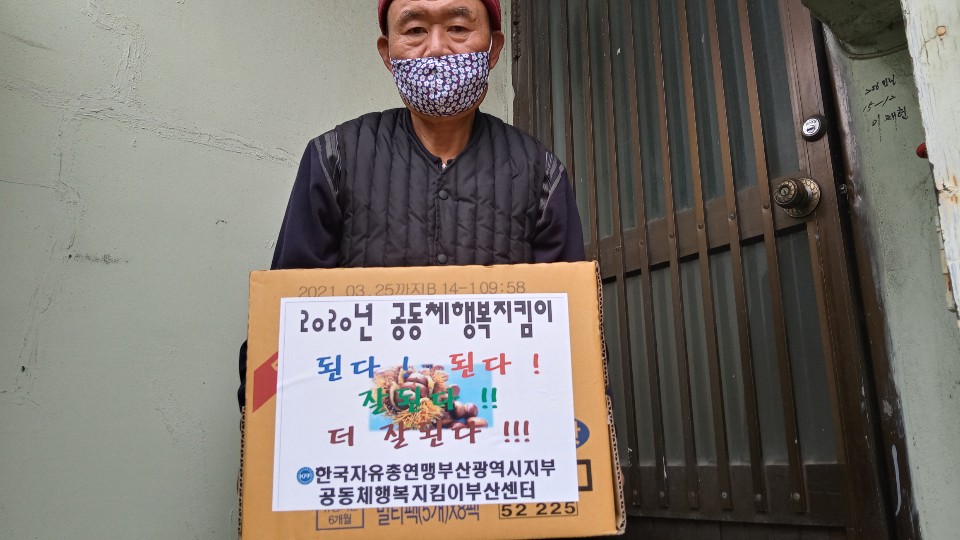 2021.03.25까지B 14-1 09:58
2020년 공동체행복지킴이
된다 ! 된다 !
잘된다 !!
더 잘된다 !!!
한국자유총연맹부산광역시지부
공동체행복지킴이부산센터
6개월
멀티팩(5개)X8팩
52 225
15-12
이재현